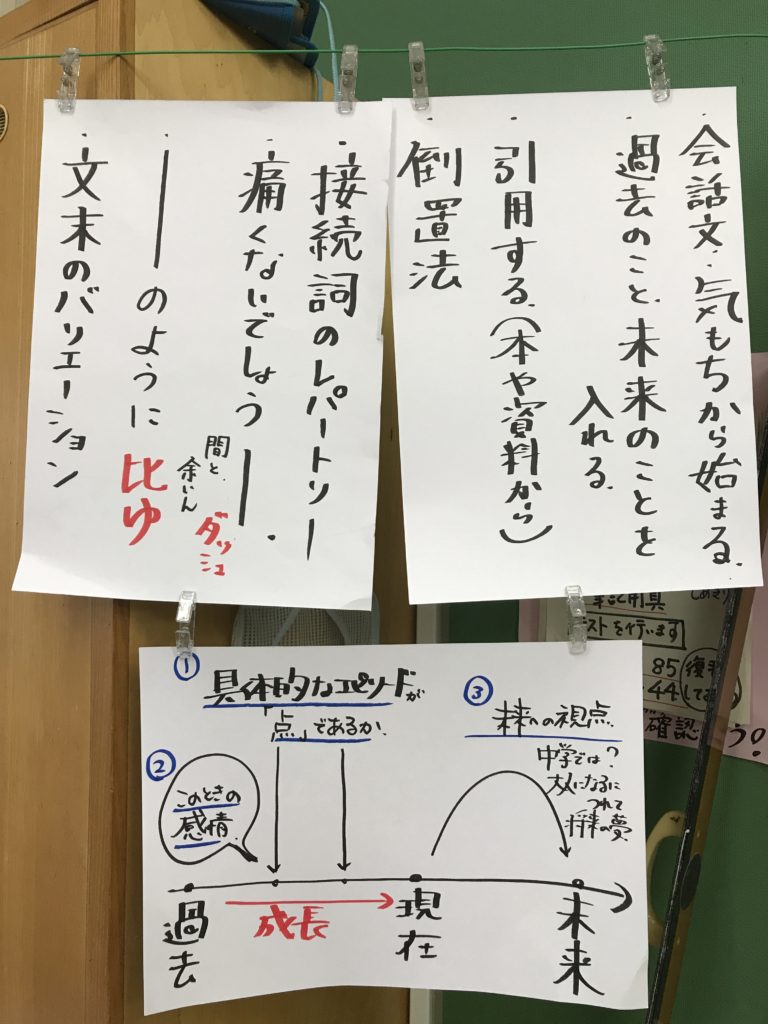 ・会話文・気もちから始まる。
・過去のこと、未来のことを
入れる。
・引用する。(本や資料から)
・倒置法
・接続詞のレパートリー
・痛くないでしょう――。
間と、
余いん
ダッシュ
・――のように 比ゆ
・文末のバリエーション
① 具体的なエピソードが
「点」であるか。
② このときの
感情。
③ 未来への視点。
中学では?
大人になるに
つれて
将来の夢
過去
成長
現在
未来
テストを行います
85
44
確認
う!